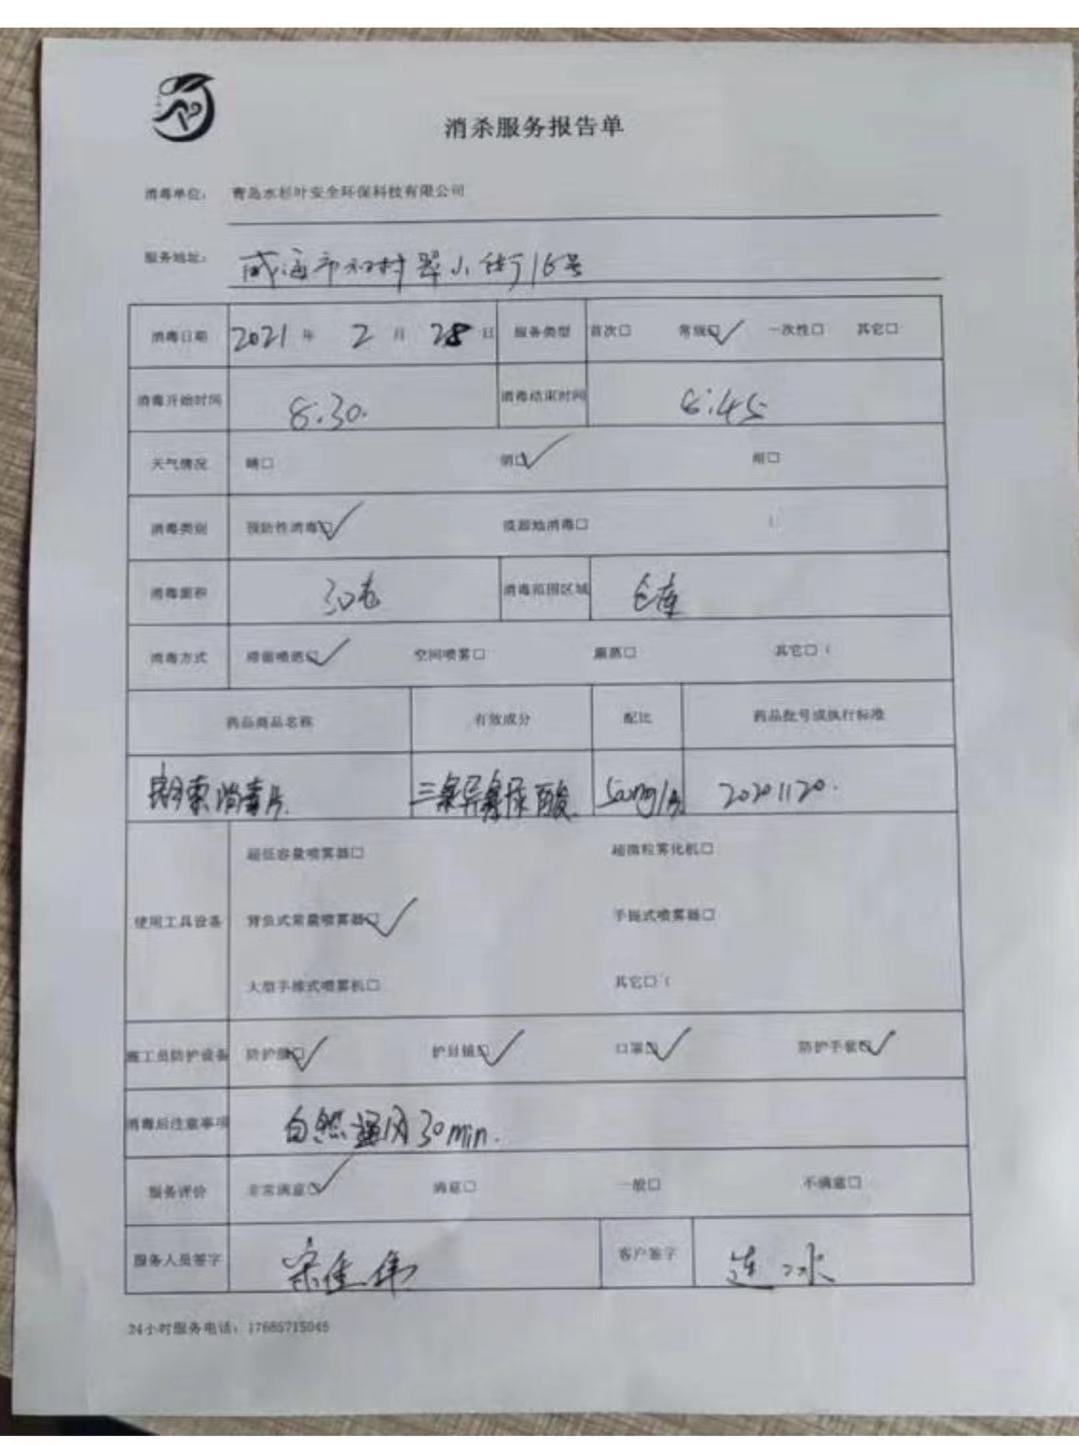 消杀服务报告单
消毒单位： 青岛水杉叶安全环保科技有限公司
服务地址： 威海市 小街16号
消毒日期 2021 年 2 月 28 日 服务类型 首次□ 常规□✓ 一次性□ 其它□
消毒开始时间 8:30. 消毒结束时间 8:45
天气情况 晴□ 阴□✓ 雨□
消毒类别 预防性消毒□✓ 疫源地消毒□
消毒面积 30 消毒范围区域 仓库
消毒方式 滞留喷洒□✓ 空间喷雾□ 熏蒸□ 其它□（
药品商品名称 有效成分 配比 药品批号或执行标准
消毒片. 三氯异氰尿酸. 500mg/ 20201120.
超低容量喷雾器□ 超微粒雾化机□
使用工具设备 背负式常量喷雾器□✓ 手提式喷雾器□
大型手推式喷雾机□ 其它□（
施工员防护设备 防护服□✓ 护目镜□✓ 口罩□✓ 防护手套□✓
消毒后注意事项 自然通风30min.
服务评价 非常满意□✓ 满意□ 一般□ 不满意□
服务人员签字 宋佳伟 客户签字 连冰
24小时服务电话：17685715045